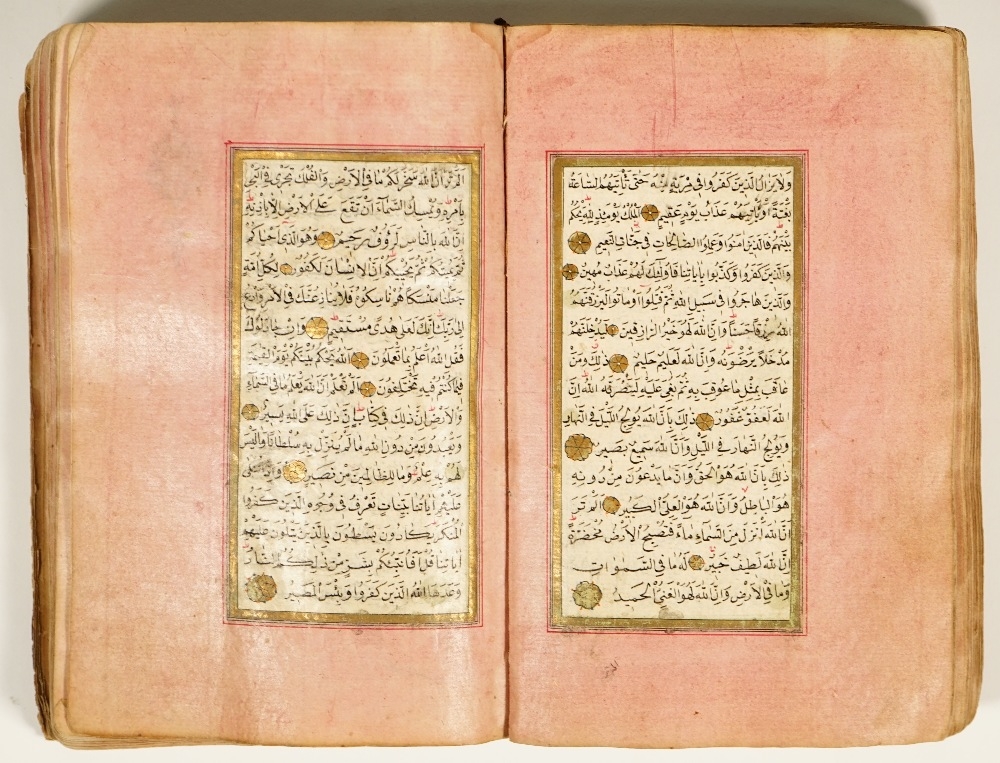 ولا يزال الذين كفروا في مرية منه حتى تأتيهم الساعة
بغتة او ياتيهم عذاب يوم عقيم الملك يومئذ لله يحكم
بينهم فالذين امنوا وعملوا الصالحات في جنات النعيم
والذين كفروا وكذبوا باياتنا فاولئك لهم عذاب مهين
والذين هاجروا في سبيل الله ثم قتلوا او ماتوا ليرزقنهم
الله رزقا حسنا وان الله لهو خير الرازقين ليدخلنهم
مدخلا يرضونه وان الله لعليم حليم ذلك ومن
عاقب بمثل ما عوقب به ثم بغي عليه لينصرنه الله ان
الله لعفو غفور ذلك بان الله يولج الليل في النهار
ويولج النهار في الليل وان الله سميع بصير
ذلك بان الله هو الحق وان ما يدعون من دونه
هو الباطل وان الله هو العلي الكبير الم تر
ان الله انزل من السماء ماء فتصبح الارض مخضرة
ان الله لطيف خبير له ما في السموات
وما في الارض وان الله لهو الغني الحميد
الم تر ان الله سخر لكم ما في الارض والفلك تجري في البحر
بامره ويمسك السماء ان تقع على الارض الا باذنه
ان الله بالناس لرؤف رحيم وهو الذي احياكم
ثم يميتكم ثم يحييكم ان الانسان لكفور لكل امة
جعلنا منسكا هم ناسكوه فلا ينازعنك في الامر وادع
الى ربك انك لعلى هدى مستقيم وان جادلوك
فقل الله اعلم بما تعملون الله يحكم بينكم يوم القيمة
فيما كنتم فيه تختلفون الم تعلم ان الله يعلم ما في السماء
والارض ان ذلك في كتاب ان ذلك على الله يسير
ويعبدون من دون الله ما لم ينزل به سلطانا وما ليس
لهم به علم وما للظالمين من نصير واذا تتلى
عليهم اياتنا بينات تعرف في وجوه الذين كفروا
المنكر يكادون يسطون بالذين يتلون عليهم
اياتنا قل افانبئكم بشر من ذلكم النار
وعدها الله الذين كفروا وبئس المصير